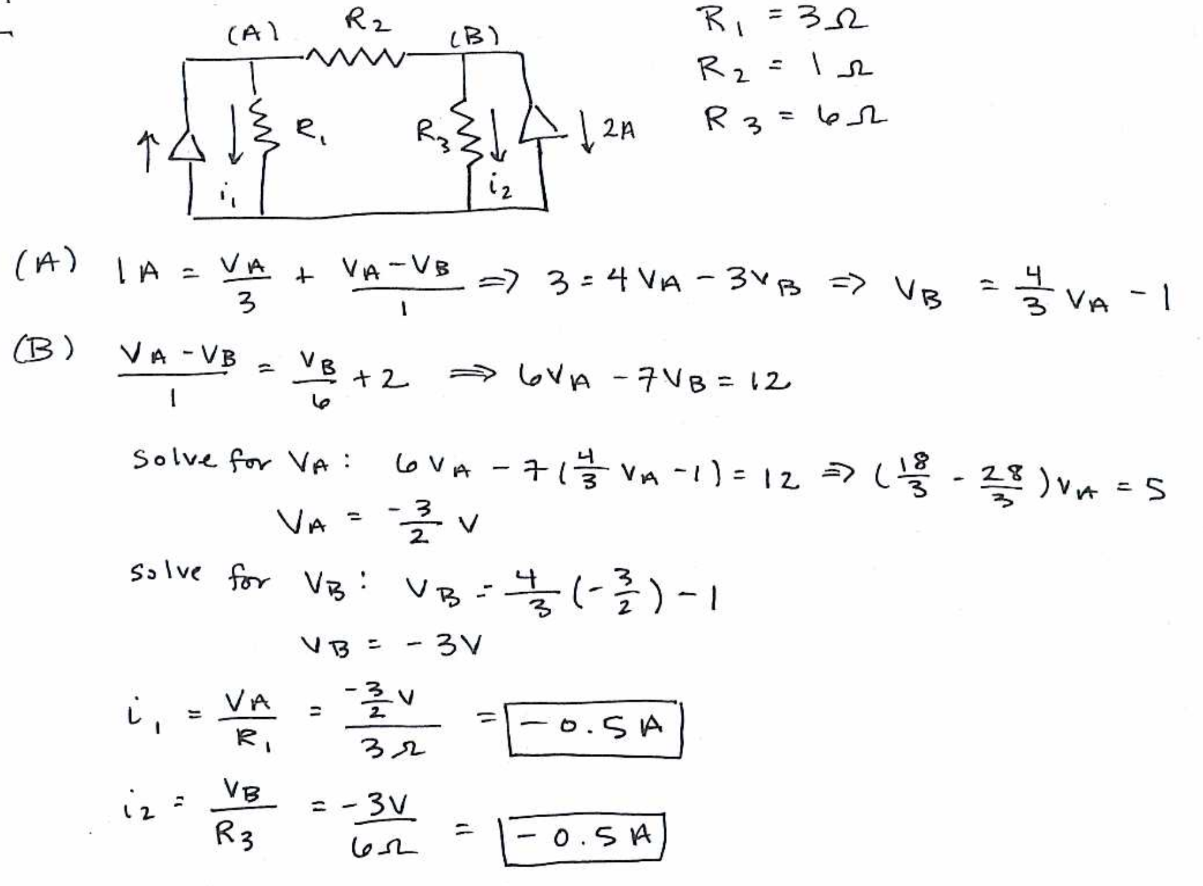 (A) R2 (B)
R1 = 3Ω
R2 = 1Ω
R3 = 6Ω
i1 R1 R3 i2 2A
(A) 1A = VA/3 + (VA-VB)/1 => 3 = 4VA - 3VB => VB = 4/3 VA - 1
(B) (VA-VB)/1 = VB/6 + 2 => 6VA - 7VB = 12
Solve for VA: 6VA - 7(4/3 VA - 1) = 12 => (18/3 - 28/3)VA = 5
VA = -3/2 V
Solve for VB: VB = 4/3 (-3/2) - 1
VB = -3V
i1 = VA/R1 = (-3/2 V)/3Ω = -0.5A
i2 = VB/R3 = -3V/6Ω = -0.5A